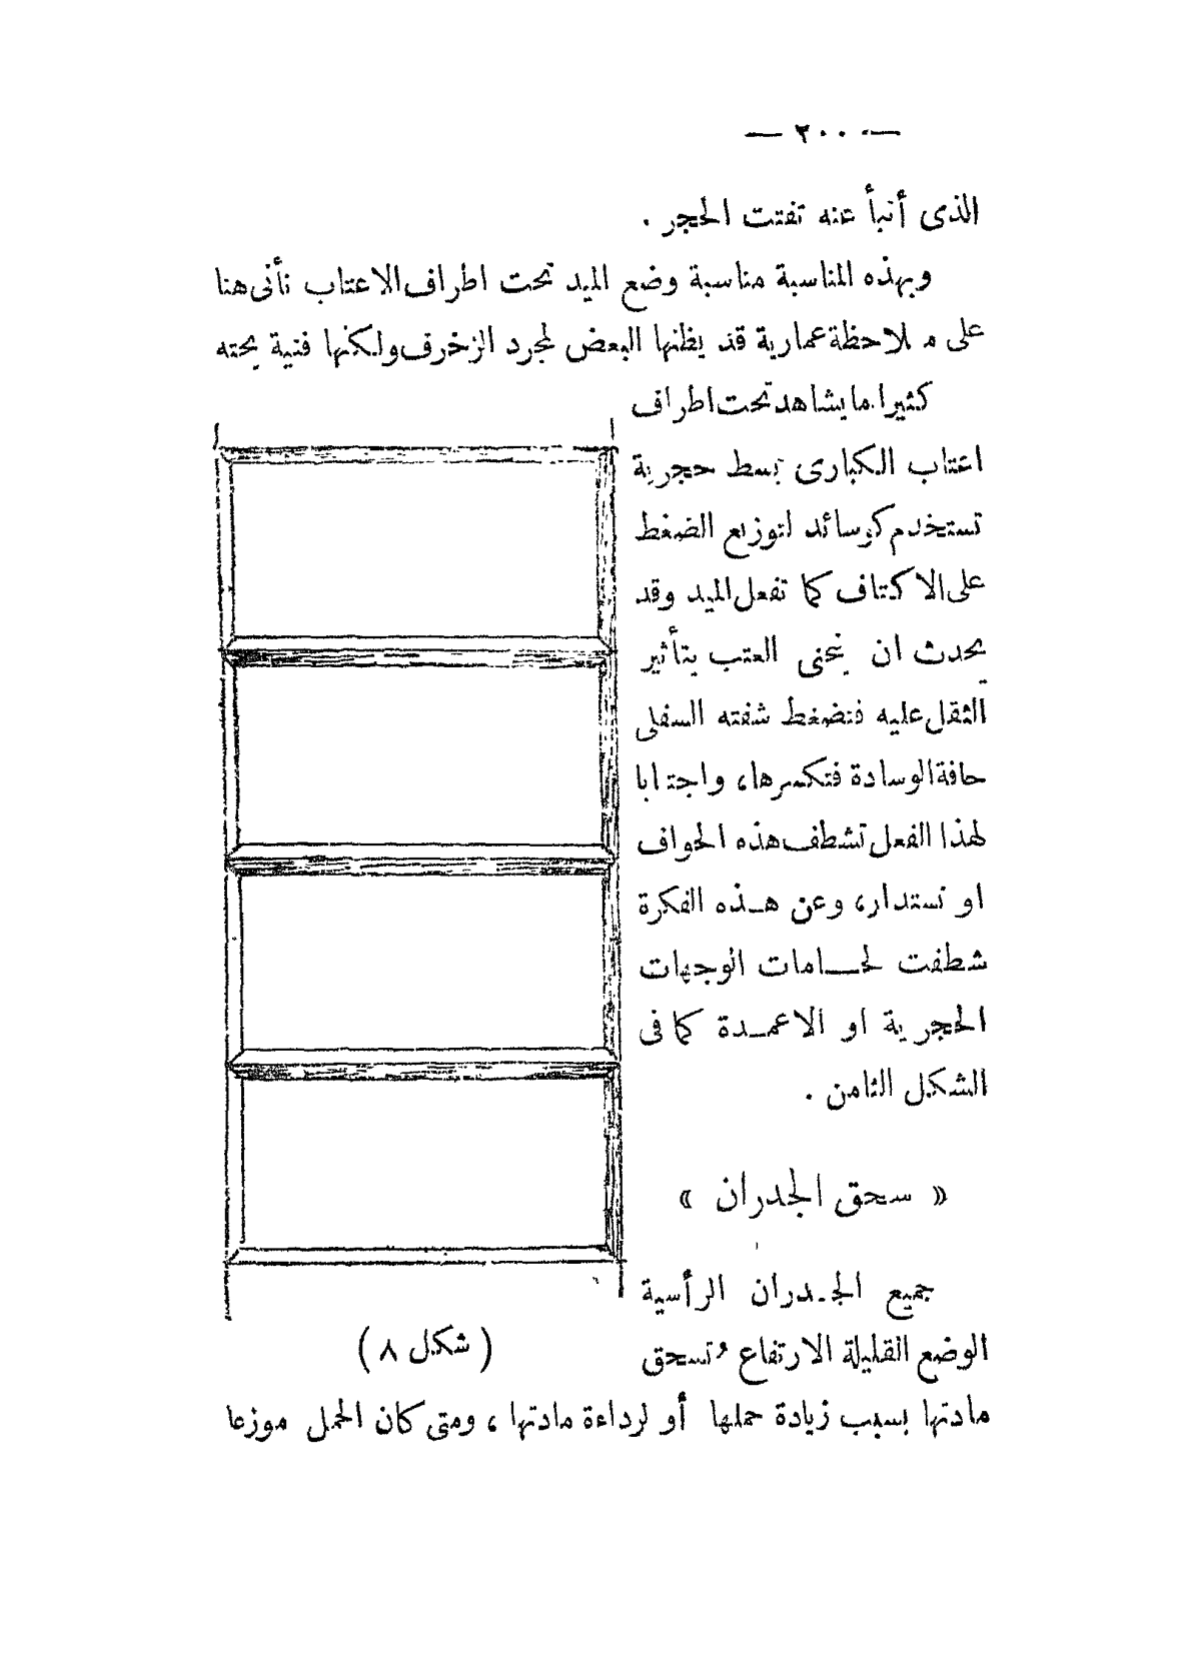 — ٢٠٠ —
الذى أنبأ عنه تفتت الحجر .
وبهذه المناسبة مناسبة وضع الميد تحت اطراف الاعتاب نأتى هنا
على ملاحظة عمارية قد يظنها البعض لمجرد الزخرف ولكنها فنية بحته
كثيرا ما يشاهد تحت اطراف
اعتاب الكبارى بسط حجرية
تستخدم كوسائد لتوزيع الضغط
على الاكتاف كما تفعل الميد وقد
يحدث ان ينحنى العتب بتأثير
الثقل عليه فتضغط شفته السفلى
حافة الوسادة فتكسرها، واجتنابا
لهذا الفعل تشطف هذه الحواف
او تستدار، وعن هذه الفكرة
شطفت لحامات الوجهات
الحجرية او الاعمدة كما فى
الشكل الثامن .
« سحق الجدران »
جميع الجدران الرأسية
الوضع القليلة الارتفاع تُسحق
( شكل ٨ )
مادتها بسبب زيادة حملها أو لرداءة مادتها ، ومتى كان الحمل موزعا